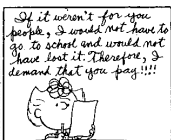 If it weren't for you
people, I would not have to
go to school and would not
have lost it. Therefore, I
demand that you pay!!!!